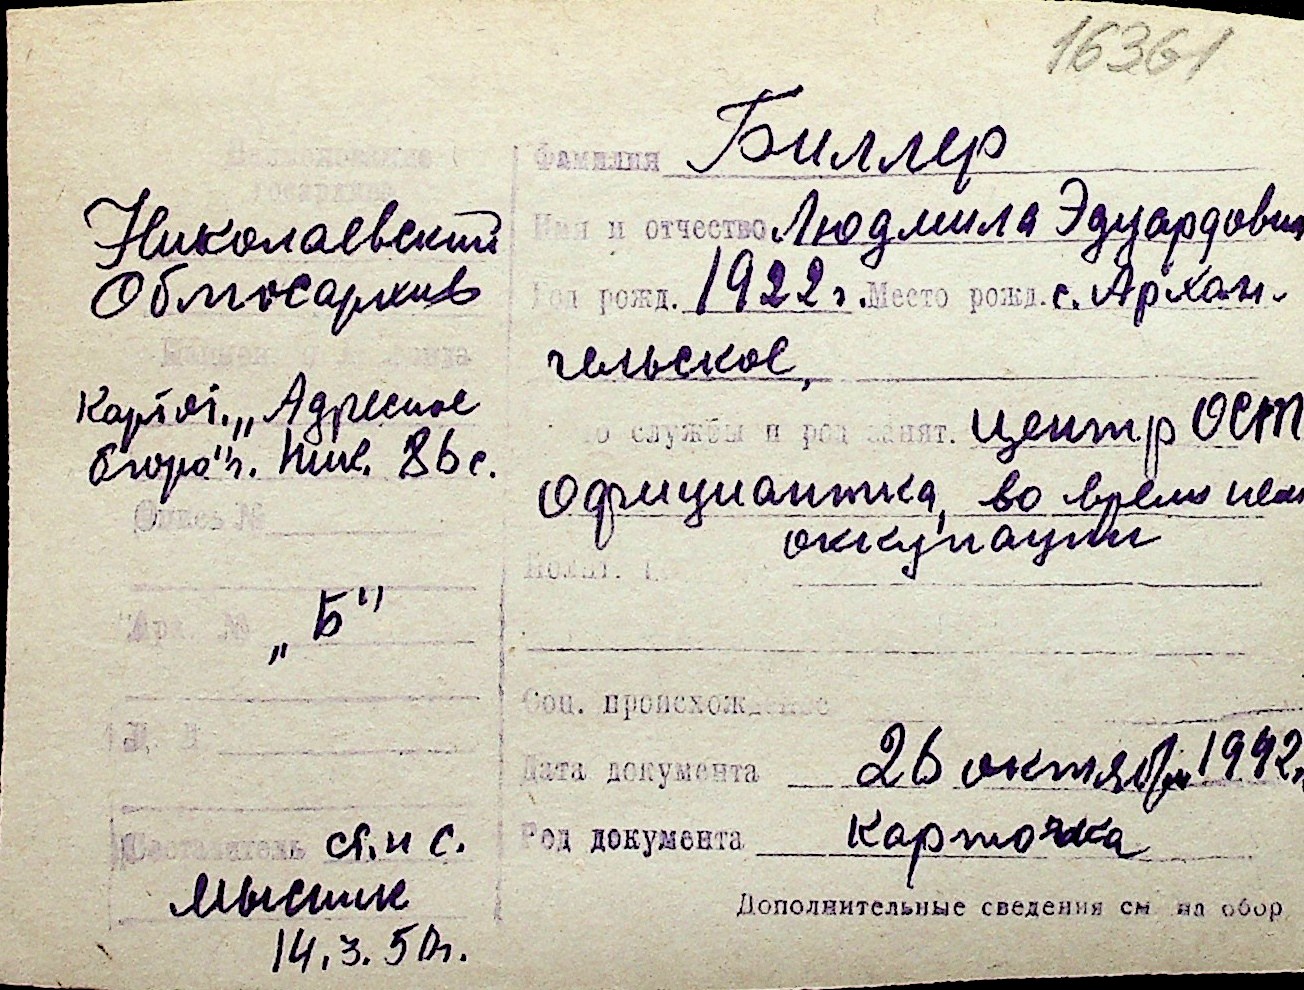 16361
Наименование
госархива
Николаевский
Облгосархив
Картот. „Адресное
бюро" г. Ник. 86 с.
Опись №
Арх. № „Б"
Составитель ст. н с.
14.3.50 г.
Фамилия Биллер
Имя и отчество Людмила Эдуардовна
Год рожд. 1922 г. Место рожд. с. Архан-
гельское,
то службы и род занят. центр ОСТ
Официантка, во время нем
оккупации
Полит.
Соц. происхождение
Дата документа 26 октября 1942 г.
Род документа карточка
Дополнительные сведения см на обор